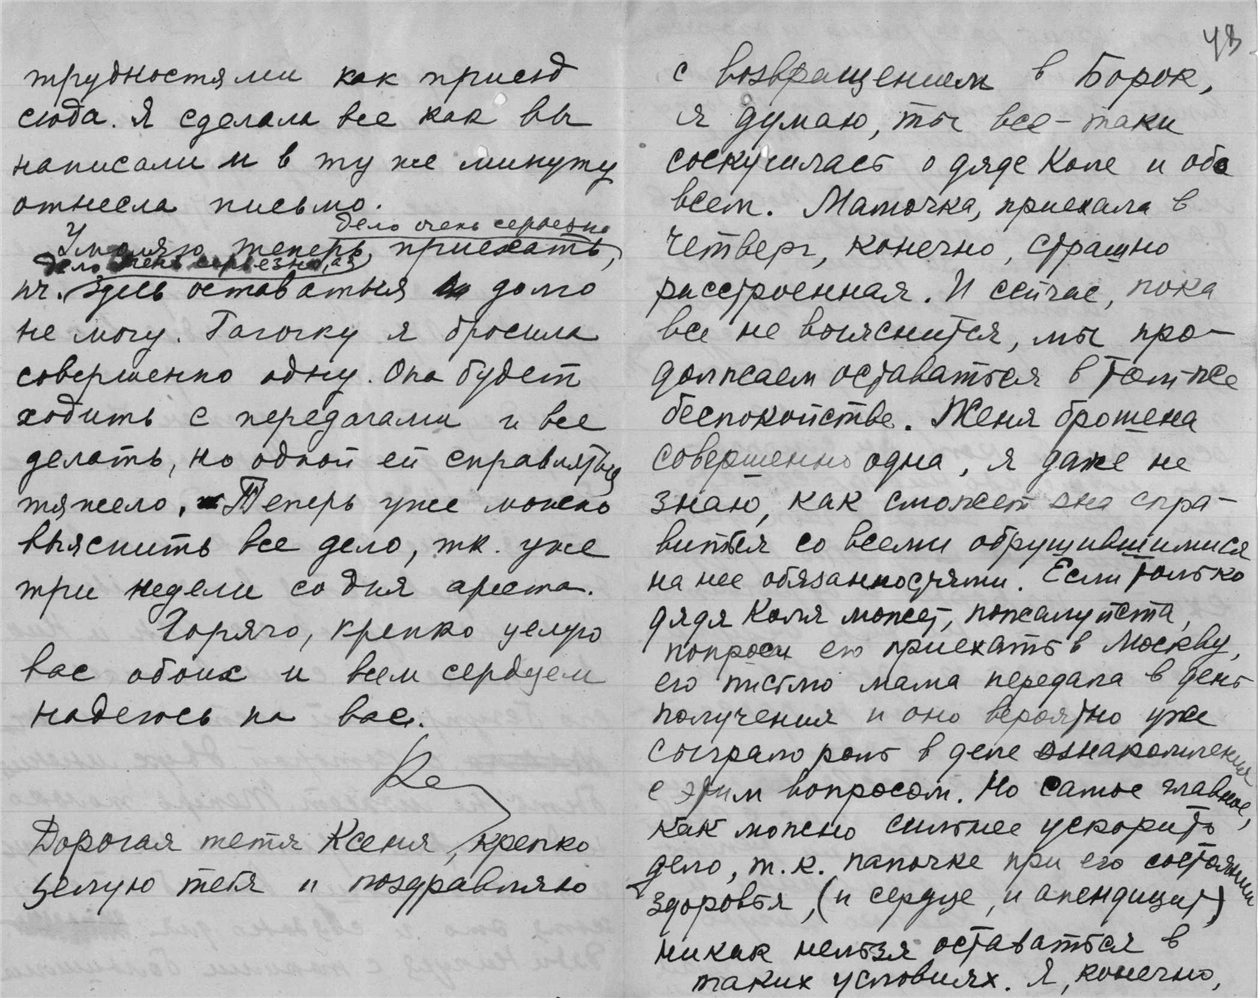 трудностями как приезд
сюда. Я сделала все как вы
написали и в ту же минуту
отнесла письмо.
дело очень серьезно
Умоляю теперь приехать,
дело очень серьезно, а я
пч. здесь оставаться долго
не могу. Гагочку я бросила
совершенно одну. Она будет
ходить с передачами и все
делать, но одной ей справляться
тяжело. Теперь уже можно
выяснить все дело, тк. уже
три недели со дня ареста.
Горячо, крепко целую
вас обоих и всем сердцем
надеюсь на вас.
Дорогая тетя Ксеня, крепко
целую тебя и поздравляю
43
с возвращением в Борок,
я думаю, ты все-таки
соскучилась о дяде Коле и обо
всем. Мамочка, приехала в
четверг, конечно, страшно
расстроенная. И сейчас, пока
все не выяснится, мы про-
должаем оставаться в том же
беспокойстве. Женя брошена
совершенно одна, я даже не
знаю, как сможет она спра-
виться со всеми обрушившимися
на нее обязанностями. Если только
дядя Коля может, пожалуйста,
попроси его приехать в Москву,
его письмо мама передала в день
получения и оно вероятно уже
сыграло роль в деле ознакомления
с этим вопросом. Но самое главное,
как можно сильнее ускорить
дело, т.к. папочке при его состоянии
здоровья, (и сердце, и апендицит)
никак нельзя оставаться в
таких условиях. Я, конечно,